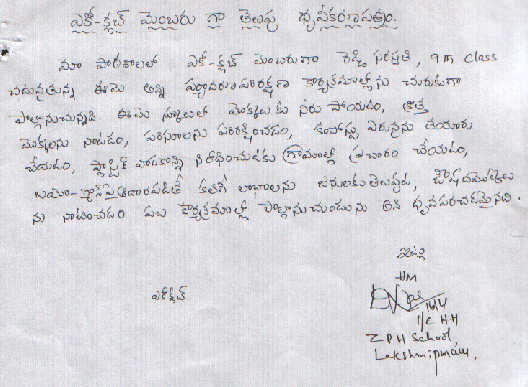 ఎకో-క్లబ్ మెంబరు గా తెలుపు ధృవీకరణపత్రం.
మా పాఠశాలలో ఎకో-క్లబ్ మెంబరుగా రెడ్డి సరస్వతి, 9th class
చదువుతున్న ఈమె అన్ని పర్యావరణ పరిరక్షణ కార్యక్రమాల్లోను చురుకుగా
పాల్గొనుచున్నది ఈమె స్కూలులో మొక్కలకు నీరు పోయడం, కొత్త
మొక్కలను నాటడం, పరిసరాలను పరిరక్షించడం, కంపోస్టు ఎరువును తయారు
చేయడం, ప్లాస్టిక్ వాడకాన్ని నిరోధించుటకు గ్రామాల్లో ప్రచారం చేయడం,
బయో-గ్యాస్ పై ఆధారపడితే కలిగే లాభాలను ప్రజలకు తెలుపుట, ఔషధ మొక్కలు
ను నాటించడం వంటి కార్యక్రమాల్లో పాల్గొనుచుండును అని ధృవపరచడమైనది.
ఇట్లు
HM
I/C HM
Z.P.H School,
Lakshmipuram,